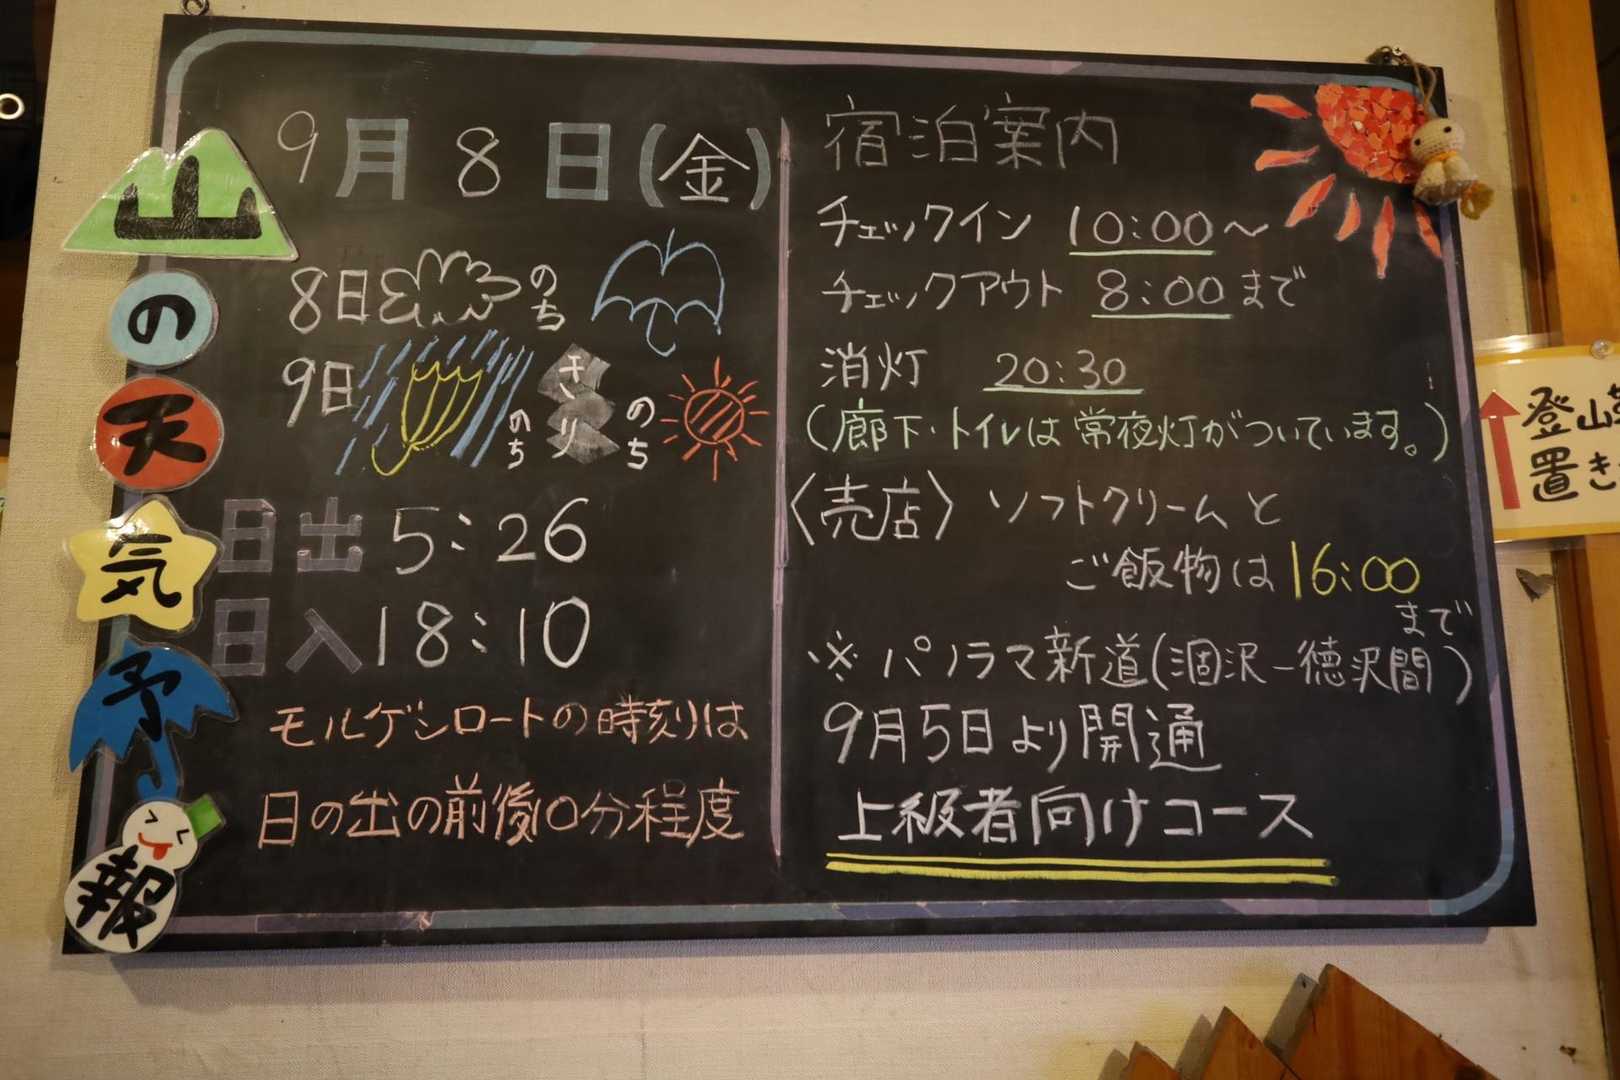 山の天気予報
9月8日(金)
8日 のち
9日 のち きり のち
日出 5:26
日入 18:10
モルゲンロートの時刻は
日の出の前後10分程度
宿泊案内
チェックイン 10:00～
チェックアウト 8:00まで
消灯 20:30
(廊下・トイレは常夜灯がついています。)
〈売店〉 ソフトクリームと
ご飯物は16:00
まで
※パノラマ新道(涸沢ー徳沢間)
9月5日より開通
上級者向けコース
登山
置き